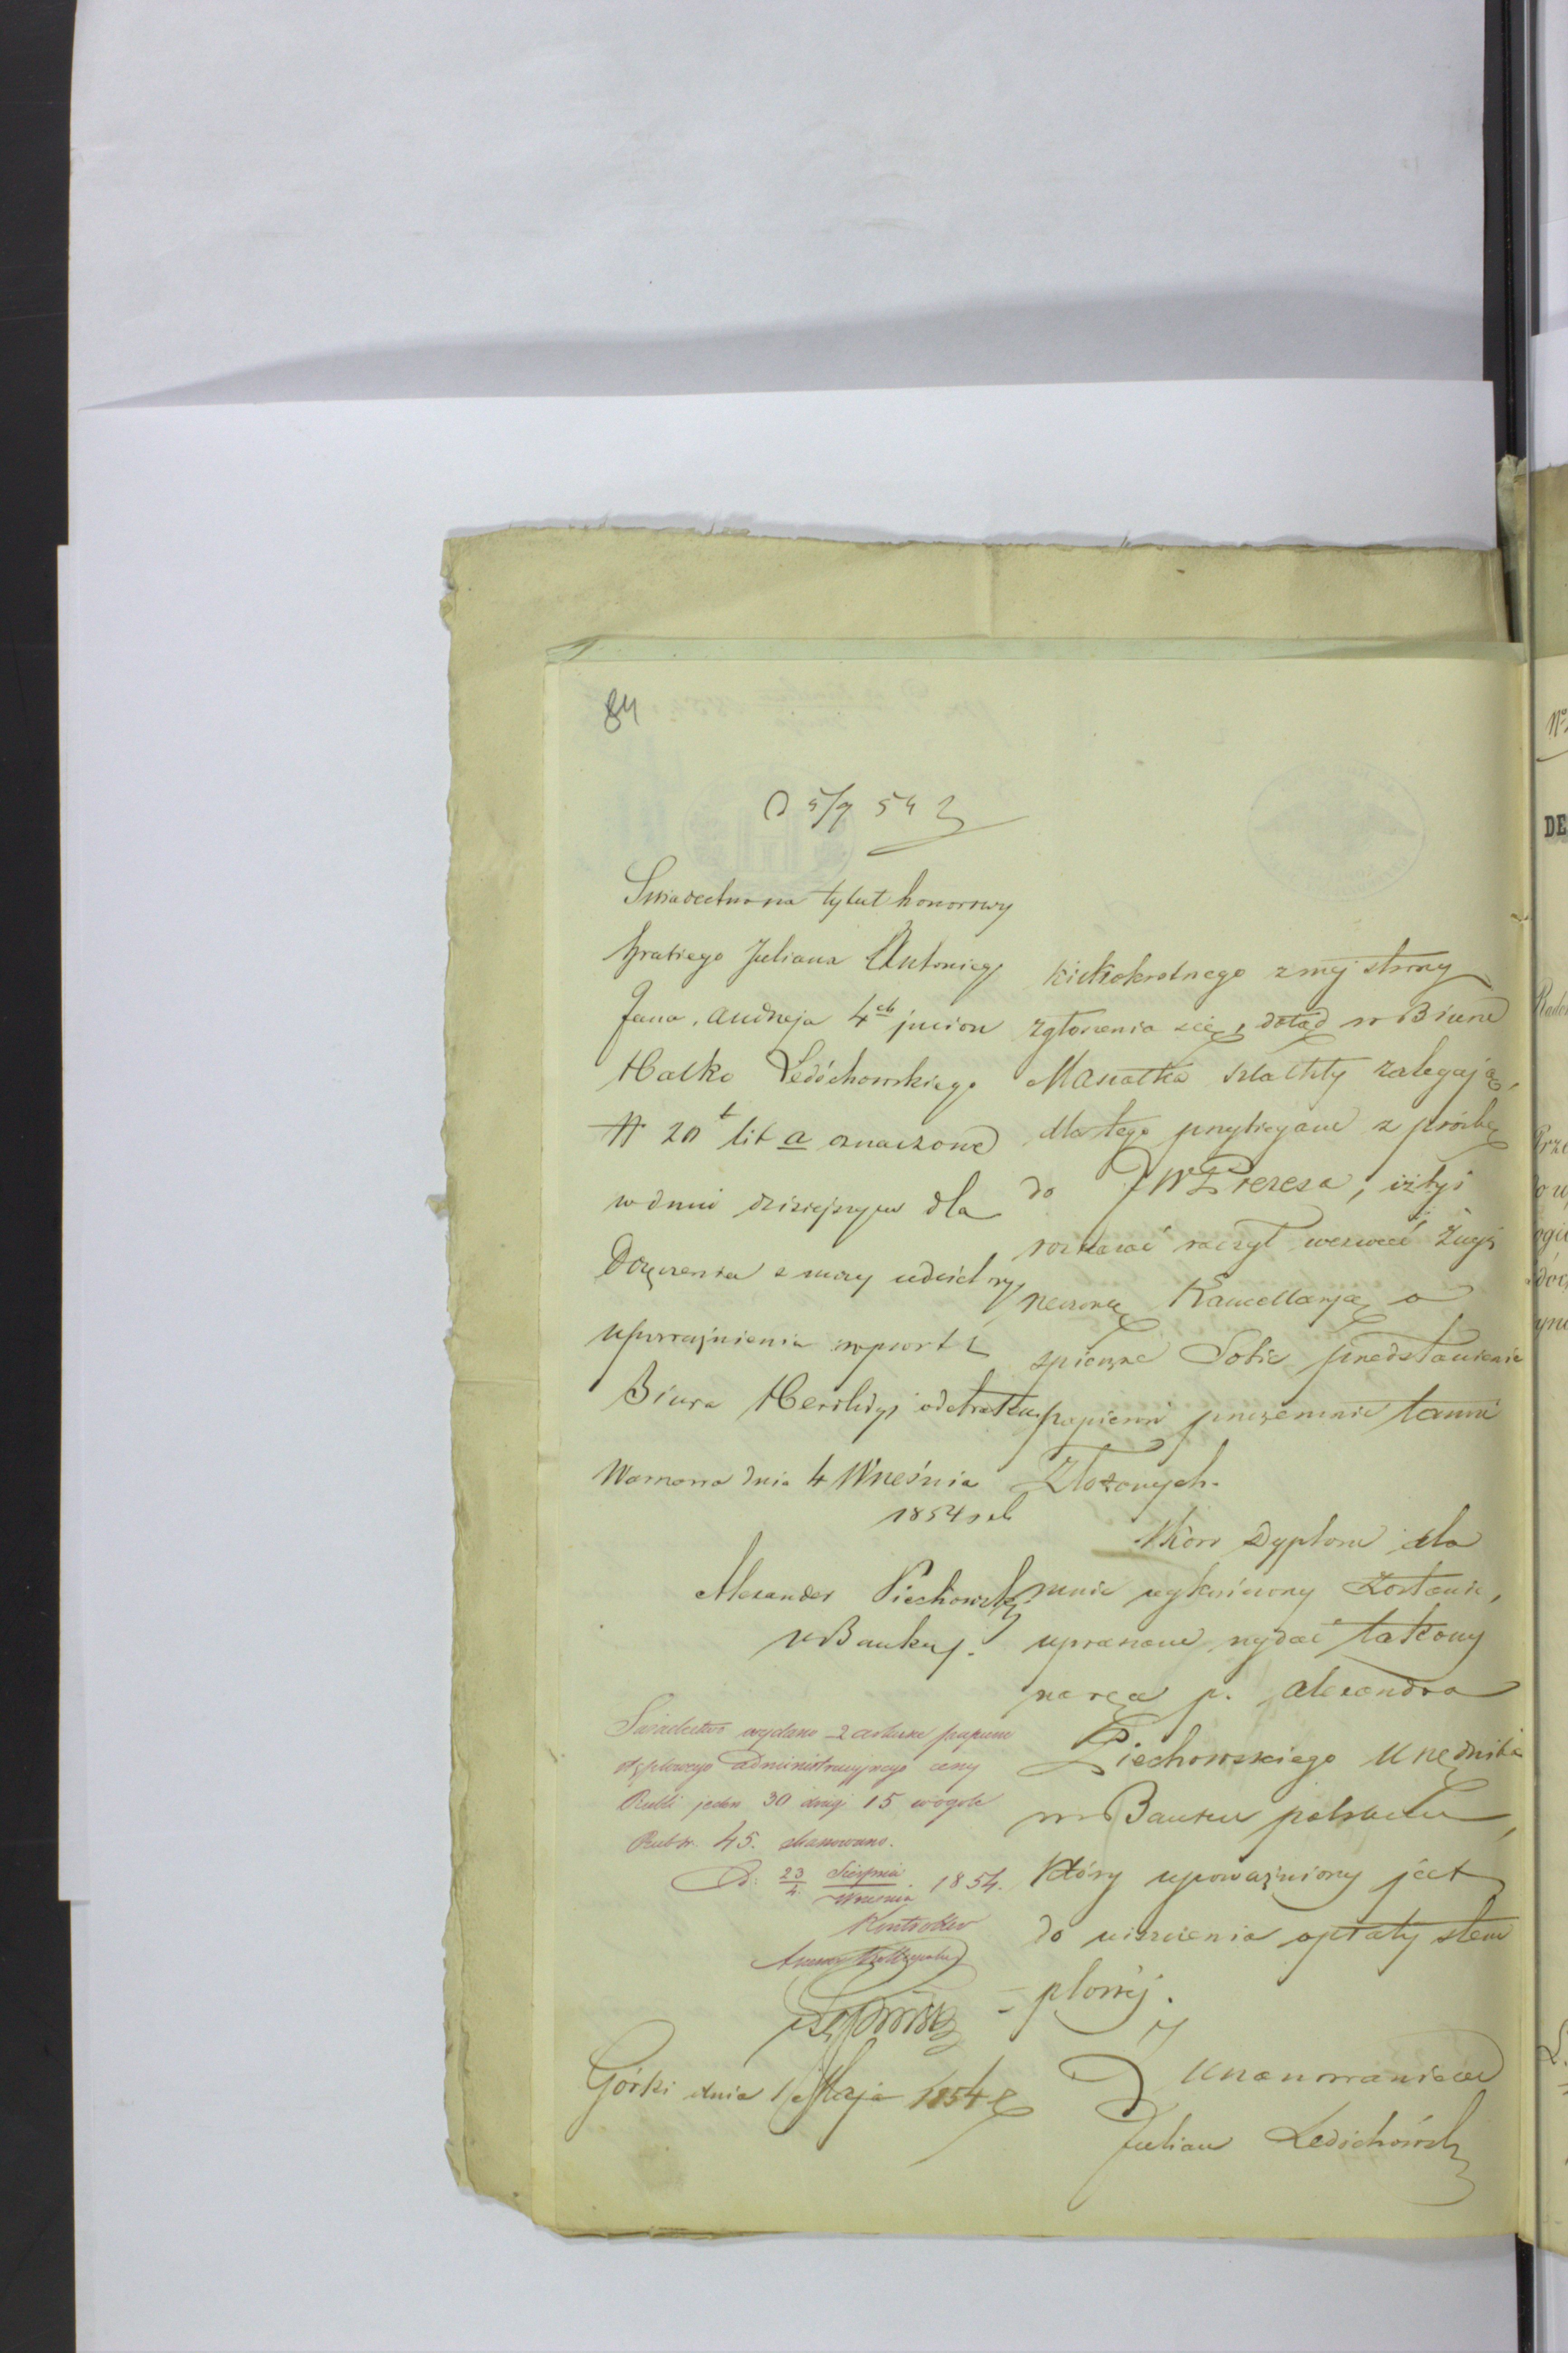 84
D 5/9 54
Swiadectwo na tytuł honorowy
hrabiego Juliana Antoniego
Jana, Andrzeja 4ch imion
Halko Ledóchowskiego
N 20 lit a oznaczone
w dniu dzisiejszym dla
Doręczenia z mocy udzielonego
upoważnienia wprost z
Biura Heroldyi odebrałem
Warszawa dnia 4 Września
1854 rok
Alexander Piechowski
w Banku p.
Świadectwo wydano 2 arkusze papieru
stęplowego administracyjnego ceny
Rubli jeden 30 drugi 15 w ogóle
Rubsr. 45. skassowano.
D: 23/4. Sierpnia/Września 1854.
Kontroller
Górki dnia 1 Maja 1854 r
kilkokrotnego z mej strony
zgłoszenia się, dotąd w Biurze
Marszałka Szlachty zalegają,
dla tego przybiegam z prośbą
do JW Prezesa, iżbyś
rozkazać raczył wezwać rzeczoną Kancellarją o
spieszne Sobie przedstawienie
papierów przezemnie tamże
Złożonych.
Skoro Dyplom dla
mnie wykończony Zostanie,
upraszam wydać takowy
na ręce p. Alexandra
Piechowskiego Urzędnika
w Banku polskim,
Który upoważniony jest
do uiszczenia opłaty stem
= plowéj.
Z Uszanowaniem
Julian Ledóchowski